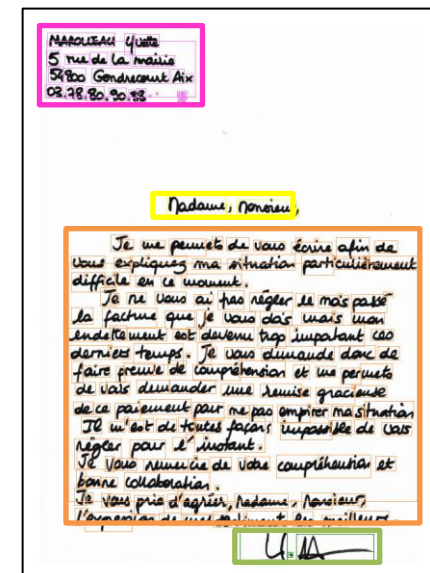 MAROUEAU Yvette
5 rue de la mairie
54800 Gondrecourt Aix
03.78.80.90.88
Madame, Monsieur,
Je me permets de vous écrire afin de
vous expliquez ma situation particulièrement
difficile en ce moment.
Je ne vous ai pas régler le mois passé
la facture que je vous dois mais mon
endettement est devenu trop important ces
derniers temps. Je vous demande donc de
faire preuve de compréhension et me permets
de vous demander une remise gracieuse
de ce paiement pour ne pas empirer ma situation
Il m'est de toutes façons impossible de vous
régler pour l'instant.
Je vous remercie de votre compréhension et
bonne collaboration.
Je vous prie d'agréer, Madame, Monsieur,
l'expression de mes sentiments les meilleurs.